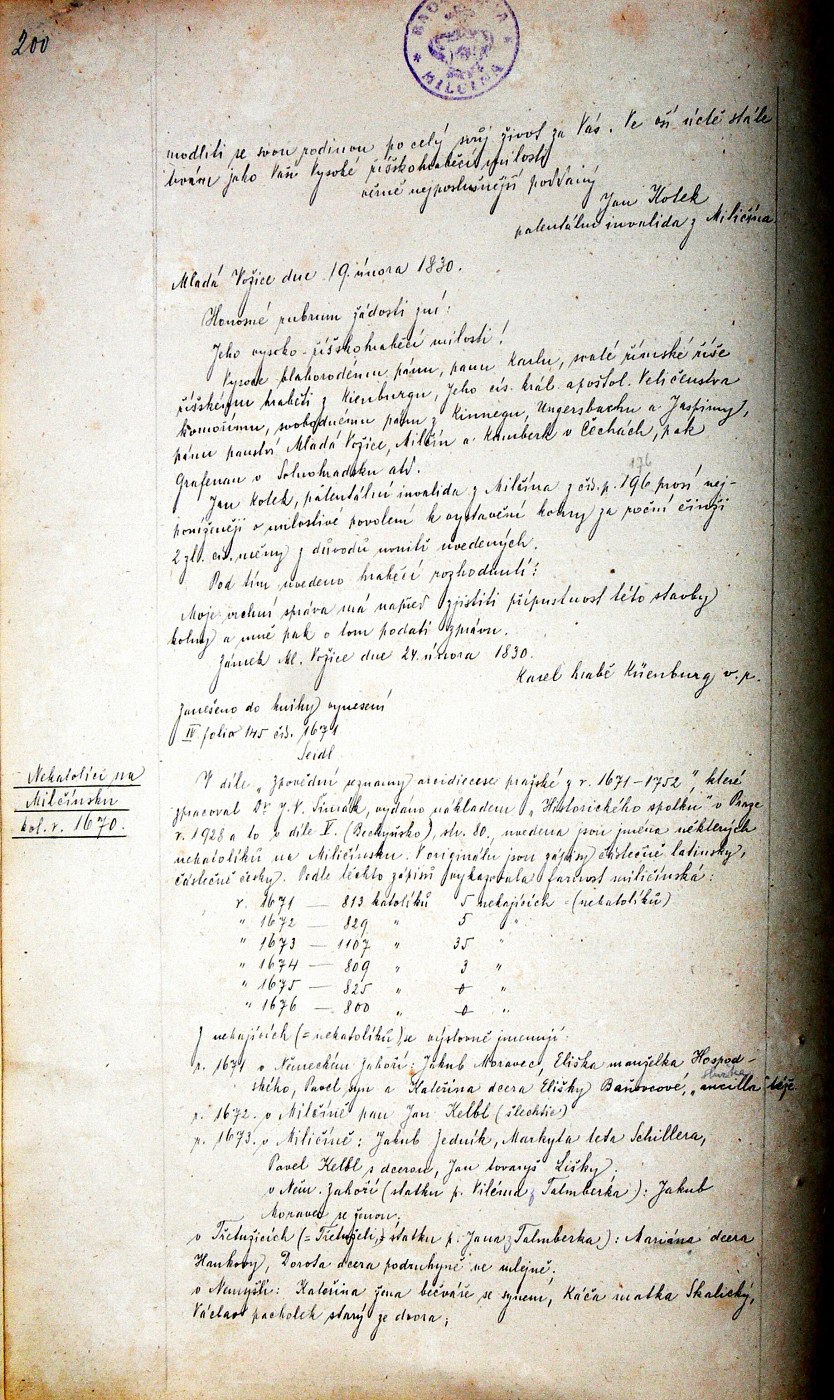 200
MILČÍNA
modliti se svou rodinou po celý svůj život za Vás. Ve vší úctě stále
trvám jeho Vaší Vysoké říšskohraběcí milosti
věrně nejposlušnější poddaný
Jan Kotek
patentální invalida z Miličína.
Mladá Vožice dne 19. února 1830.
Honosné rubrum žádosti zní:
Jeho vysoko-říšskohraběcí milosti!
Vysoce blahorodému pánu, panu Karlu, svaté římské říše
říšskému hraběti z Kienburgu, Jeho cís. král. apoštol. Veličenstva
komořímu, svobodnému pánu z Kinnegu, Ungersbachu a Jasfimy,
pánu panství Mladá Vožice, Milčín a Kamberk v Čechách, pak
Grafenau v Solnohradsku atd.
176
Jan Kotek, patentální invalida z Milčína z čís. p. 196 prosí nej-
poníženěji o milostivé povolení k vystavění kolny za roční činži
2 zl. cís. měny z důvodů uvnitř uvedených.
Pod tím uvedeno hraběcí rozhodnutí:
Moje vrchní správa má napřed zjistiti přípustnost této stavby
kolny a mně pak o tom podati zprávu.
Zámek Ml. Vožice dne 24. února 1830.
Karel hrabě Küenburg v. r.
Zanešeno do knihy vynesení
IV folio 145 čís. 1671
Seidl
Nekatolíci na
Milčínsku
kol. r. 1670.
V díle „Zpovědní seznamy arcidiecese pražské z r. 1671-1752", které
zpracoval Dr J. V. Šimák, vydano nákladem „Historického spolku" v Praze
r. 1928 a to v díle V. (Bechyňsko), str. 80, uvedena jsou jména některých
nekatolíků na Miličínsku. V originálu jsou zápisy částečně latinsky,
částečně česky. Podle těchto zápisů vykazovala farnost miličínská:
r. 1671 — 813 katolíků 5 nekajících = (nekatolíků)
" 1672 — 829 " 5 "
" 1673 — 1107 " 35 "
" 1674 — 809 " 3 "
" 1675 — 825 " 0 "
" 1676 — 800 " 0 "
Z nekajících (= nekatolíků) se výslovně jmenují:
r. 1671 v Německém Záhoří: Jakub Moravec, Eliška manželka Hospod-
služka
ského, Pavel syn a Kateřina dcera Elišky Baňovcové, „ancilla" též.
r. 1672. v Milčíně pan Jan Kelbl (šlechtic)
r. 1673. v Miličíně: Jakub Jedník, Markyta teta Schillera,
Pavel Kelbl s dcerou, Jan tovaryš Lišky.
v Něm. Záhoří (statku p. Viléma z Talmberka): Jakub
Moravec se ženou;
v Třetužicích (= Třetuželi, statku p. Jana z Talmberka): Mariána dcera
Hankovy, Dorota dcera podruhyně ve mlejně;
v Nemyšli: Kateřina žena bečváře se synem, Káča matka Skalický,
Václav pacholek starý ze dvora;